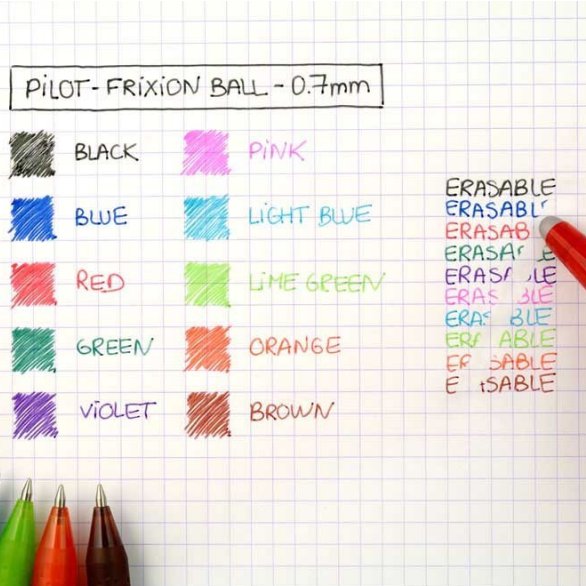 PILOT-FRIXION BALL - 0.7mm
BLACK
BLUE
RED
GREEN
VIOLET
PINK
LIGHT BLUE
LIME GREEN
ORANGE
BROWN
ERASABLE
ERASABL
ERASAB
ERASA E
ERAS LE
ERAS BLE
ERA BLE
ER ABLE
ER SABLE
E SABLE